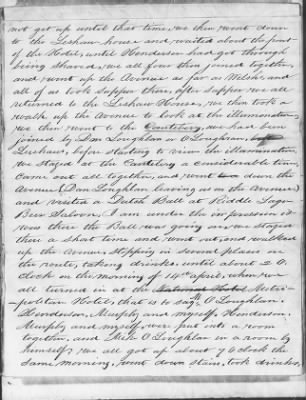 not get up until that time, we then went down
to the Lichau house and waited about the front
of the Hotel, until Henderson had got through
being shaved, we all four then joined together,
and went up the Avenue as far as Welch's, and
all of us took Supper there, after supper we all
returned to the Lichau House, we then took a
walk up the Avenue to look at the illumination
we then went to the Canterbury, we had been
joined by Dan Loughlan O'Loughlan
Lichau, before starting to view the Illumination
we stayed at the Canterbury a considerable time,
Came out all together, and went down the
Avenue (Dan Loughlan leaving us on the Avenue)
and visited a Dutch Ball at Riddle Lager
Beer Saloon, I am under the impression it
was there the Ball was going on, we stayed
there a short time and went out, and walked
up the Avenue, stopping in several places on
the route, taking drinks until about 2 O.
Clock on the morning of 14th April, when we
all turned in at the National Hotel Metro-
-politan Hotel, that is to say O'Loughlan,
Henderson, Murphy and myself, Henderson,
Murphy and myself, were put into a room
together, and Mike O'Loughlan in a room by
himself, we all got up about 9 O'clock the
same morning, went down stairs, took drinks,